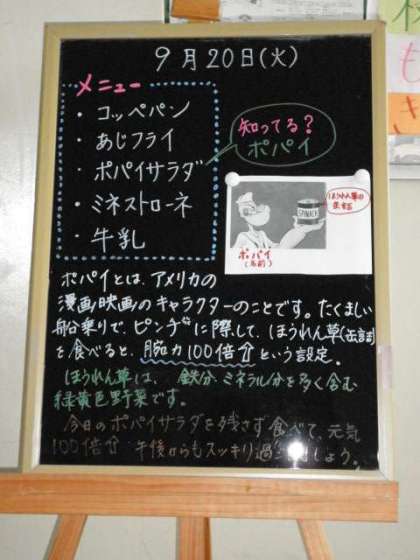 9月20日(火)
メニュー
・コッペパン
・あじフライ
・ポパイサラダ
・ミネストローネ
・牛乳
知ってる?
ポパイ
SPINACH
ほうれん草の
缶詰
ポパイ
(名前)
ポパイとは、アメリカの
漫画映画のキャラクターのことです。たくましい
船乗りで、ピンチに際して、ほうれん草(缶詰)
を食べると、腕力100倍⇧という設定。
ほうれん草は、鉄分、ミネラル分を多く含む
緑黄色野菜です。
今日のポパイサラダを残さず食べて、元気
100倍⇧ 午後からもスッキリ過ごしましょう。
も
き